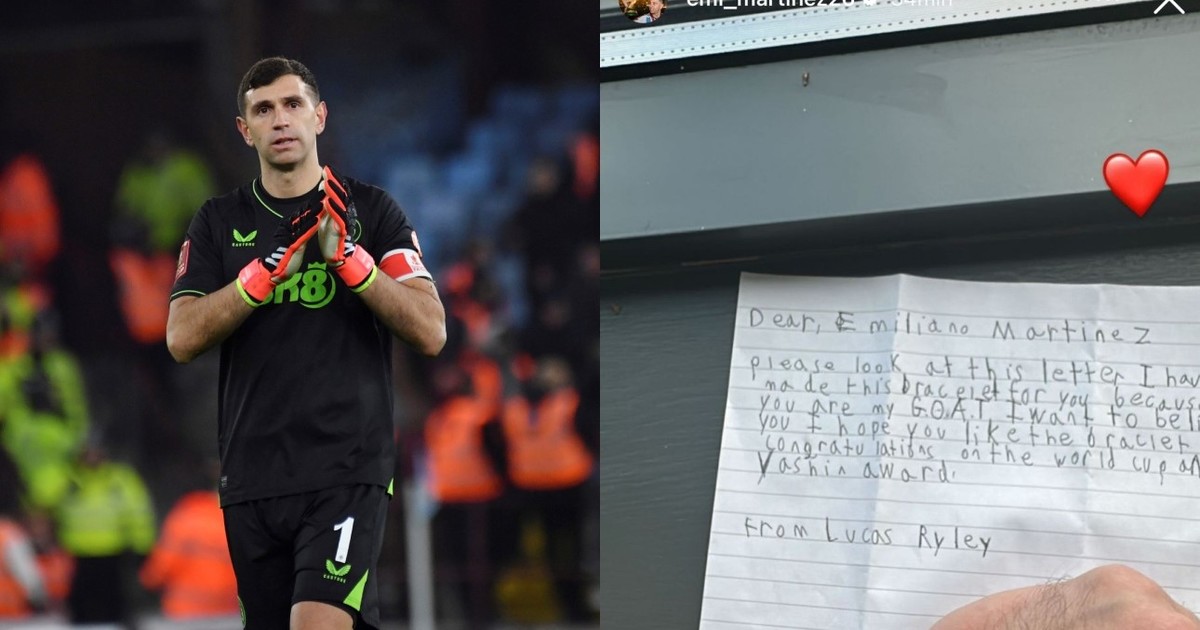 CASTORE
BK8
1
CASTORE
emi_martinez26 54min
Dear, Emiliano Martinez
please look at this letter I hav
made this bracelet for you becaus
you are my G.O.A.T I want to be li
you I hope you like the braclet
congratulations on the world cup an
Yashin award.
From Lucas Ryley